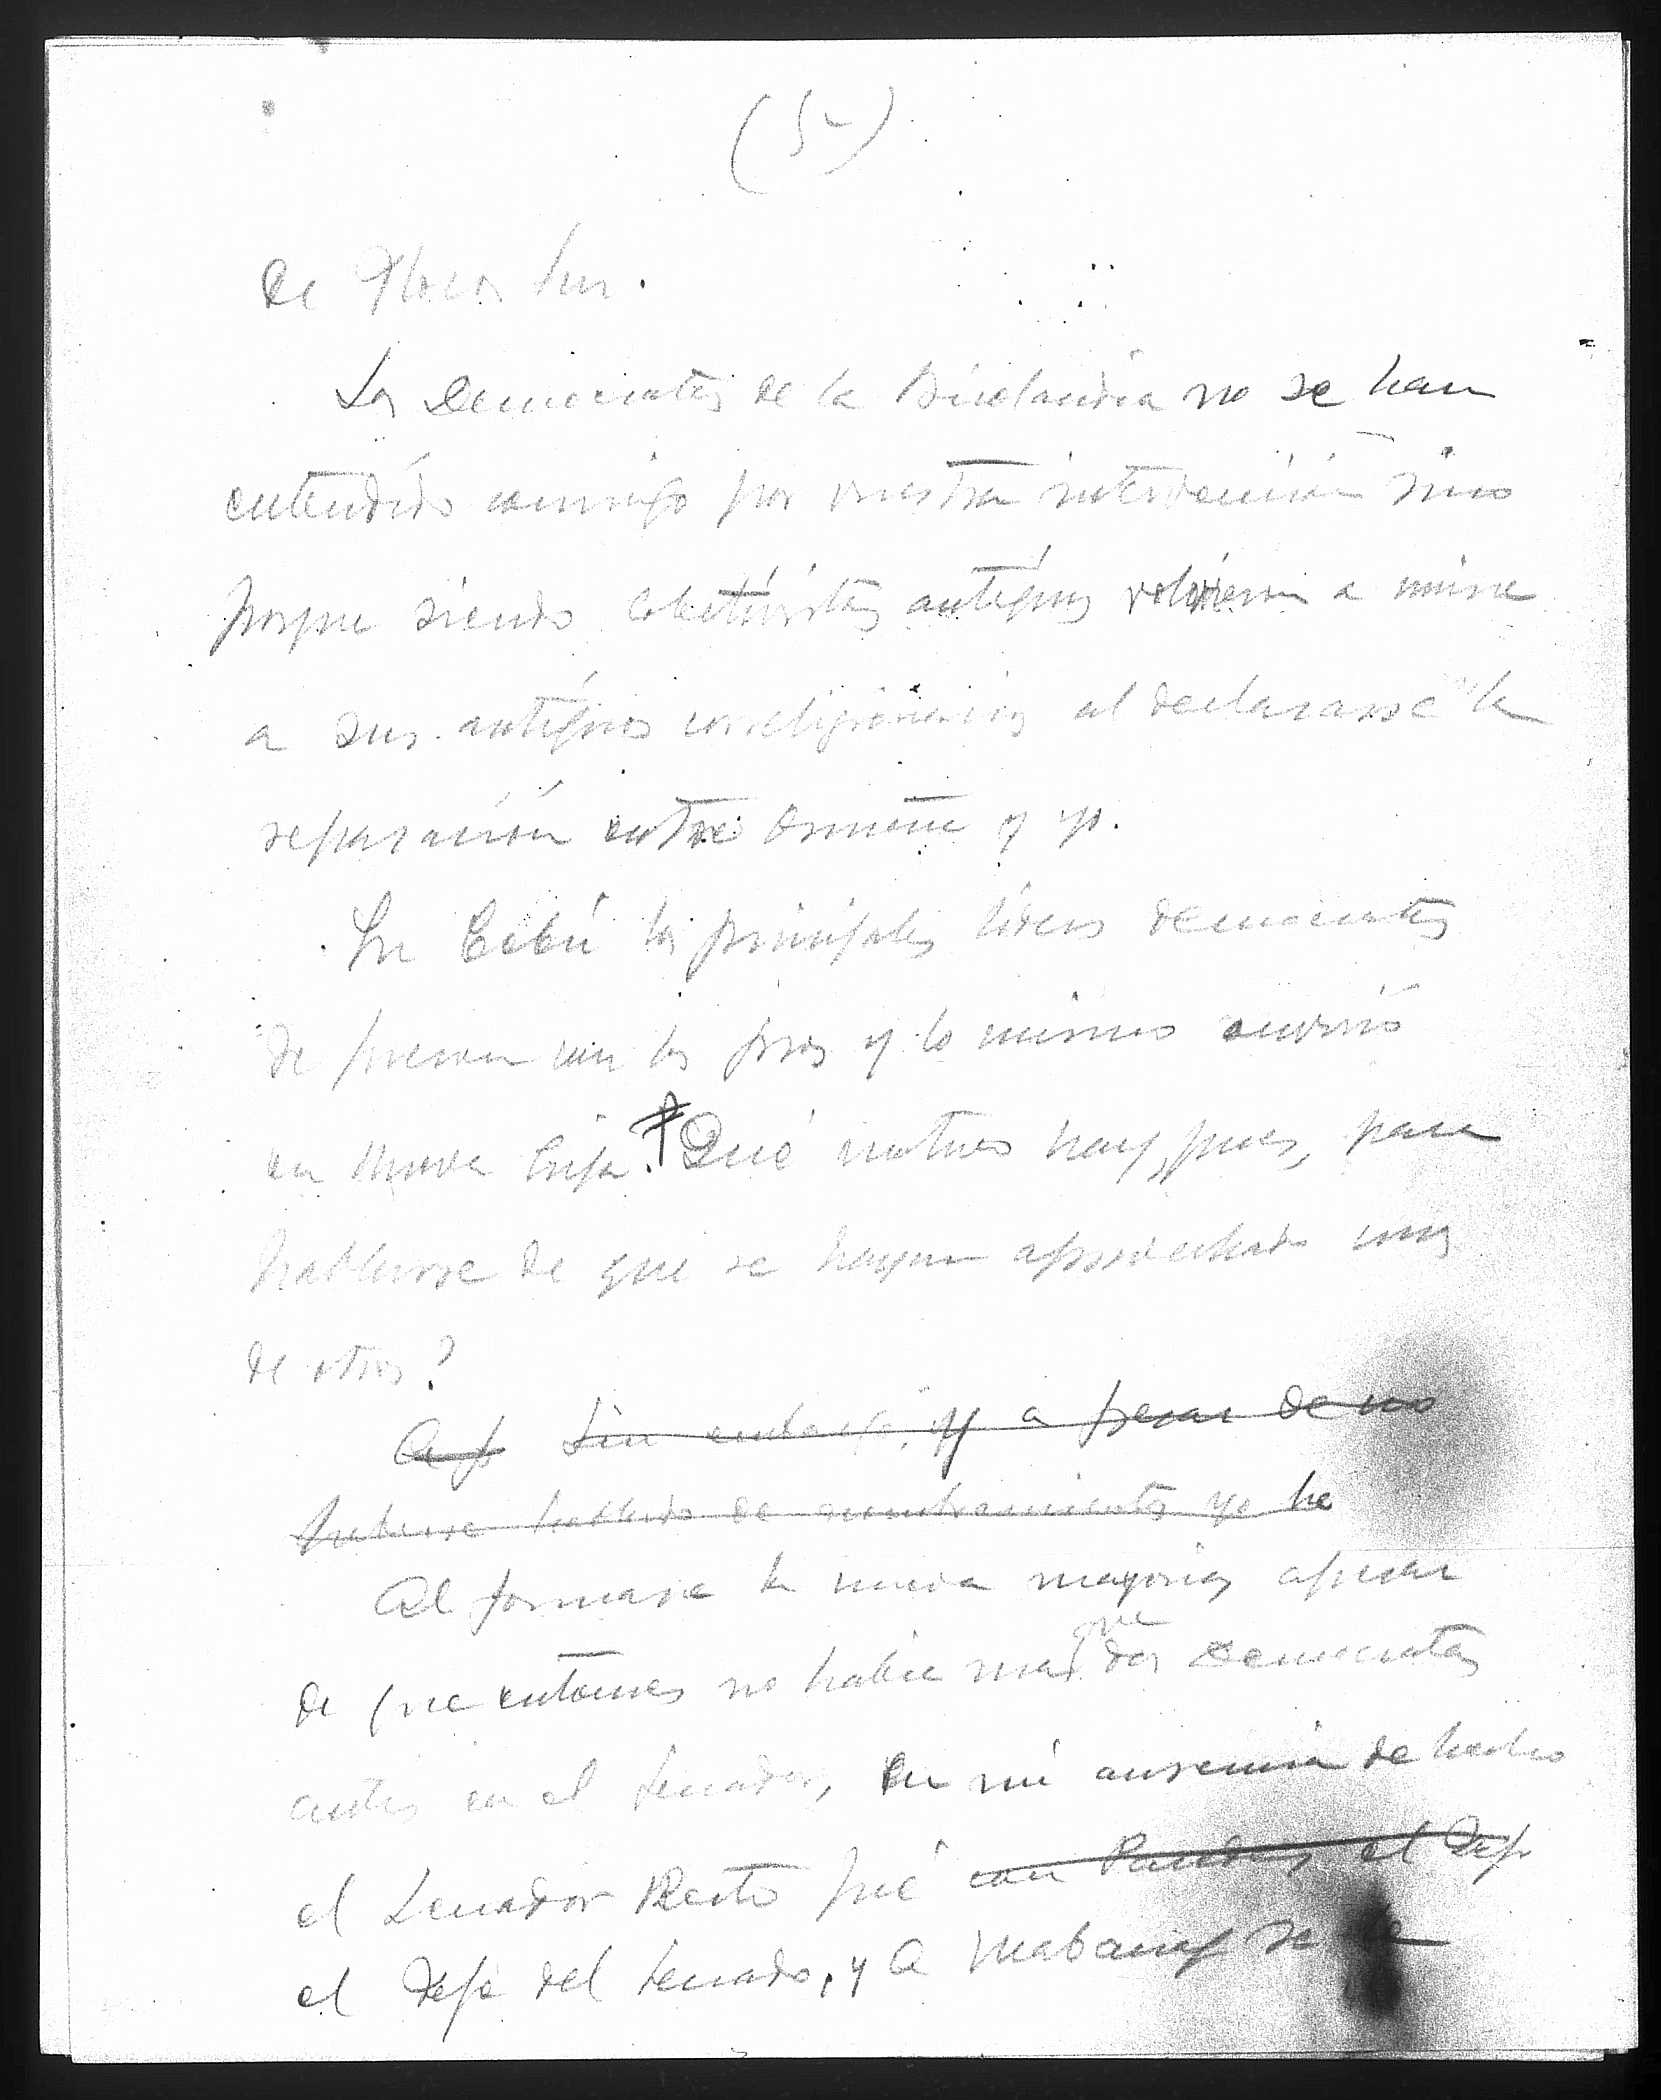 (5)
de Ilocos Sur.
Los Democratas de la Bisolandia no se han
entendido conmigo por vuestra intervención sino
porque siendo colectivistas antiguos volvieron a unirse
a sus antiguos correligionarios al declararse la
separación entre Osmeña y yo.
En Cebú los principales líderes democratas
de fueron con los pros y lo mismo ocurrió
en Nueva Ecija. Qué motivo hay, pues, para
hablarse de que se hayan aprovechado unos
de otros?
Sin embargo, y a pesar de no
haberse hablado de nombramientos yo he
Al formarse la nueva mayoria, apesar
de que entonces no habia mas que dos democratas
antis en el Senado, en mi ausencia de hecho
el Senador Recto fué con el Jefe
el Jefe del Senado, y a Mabanag se le